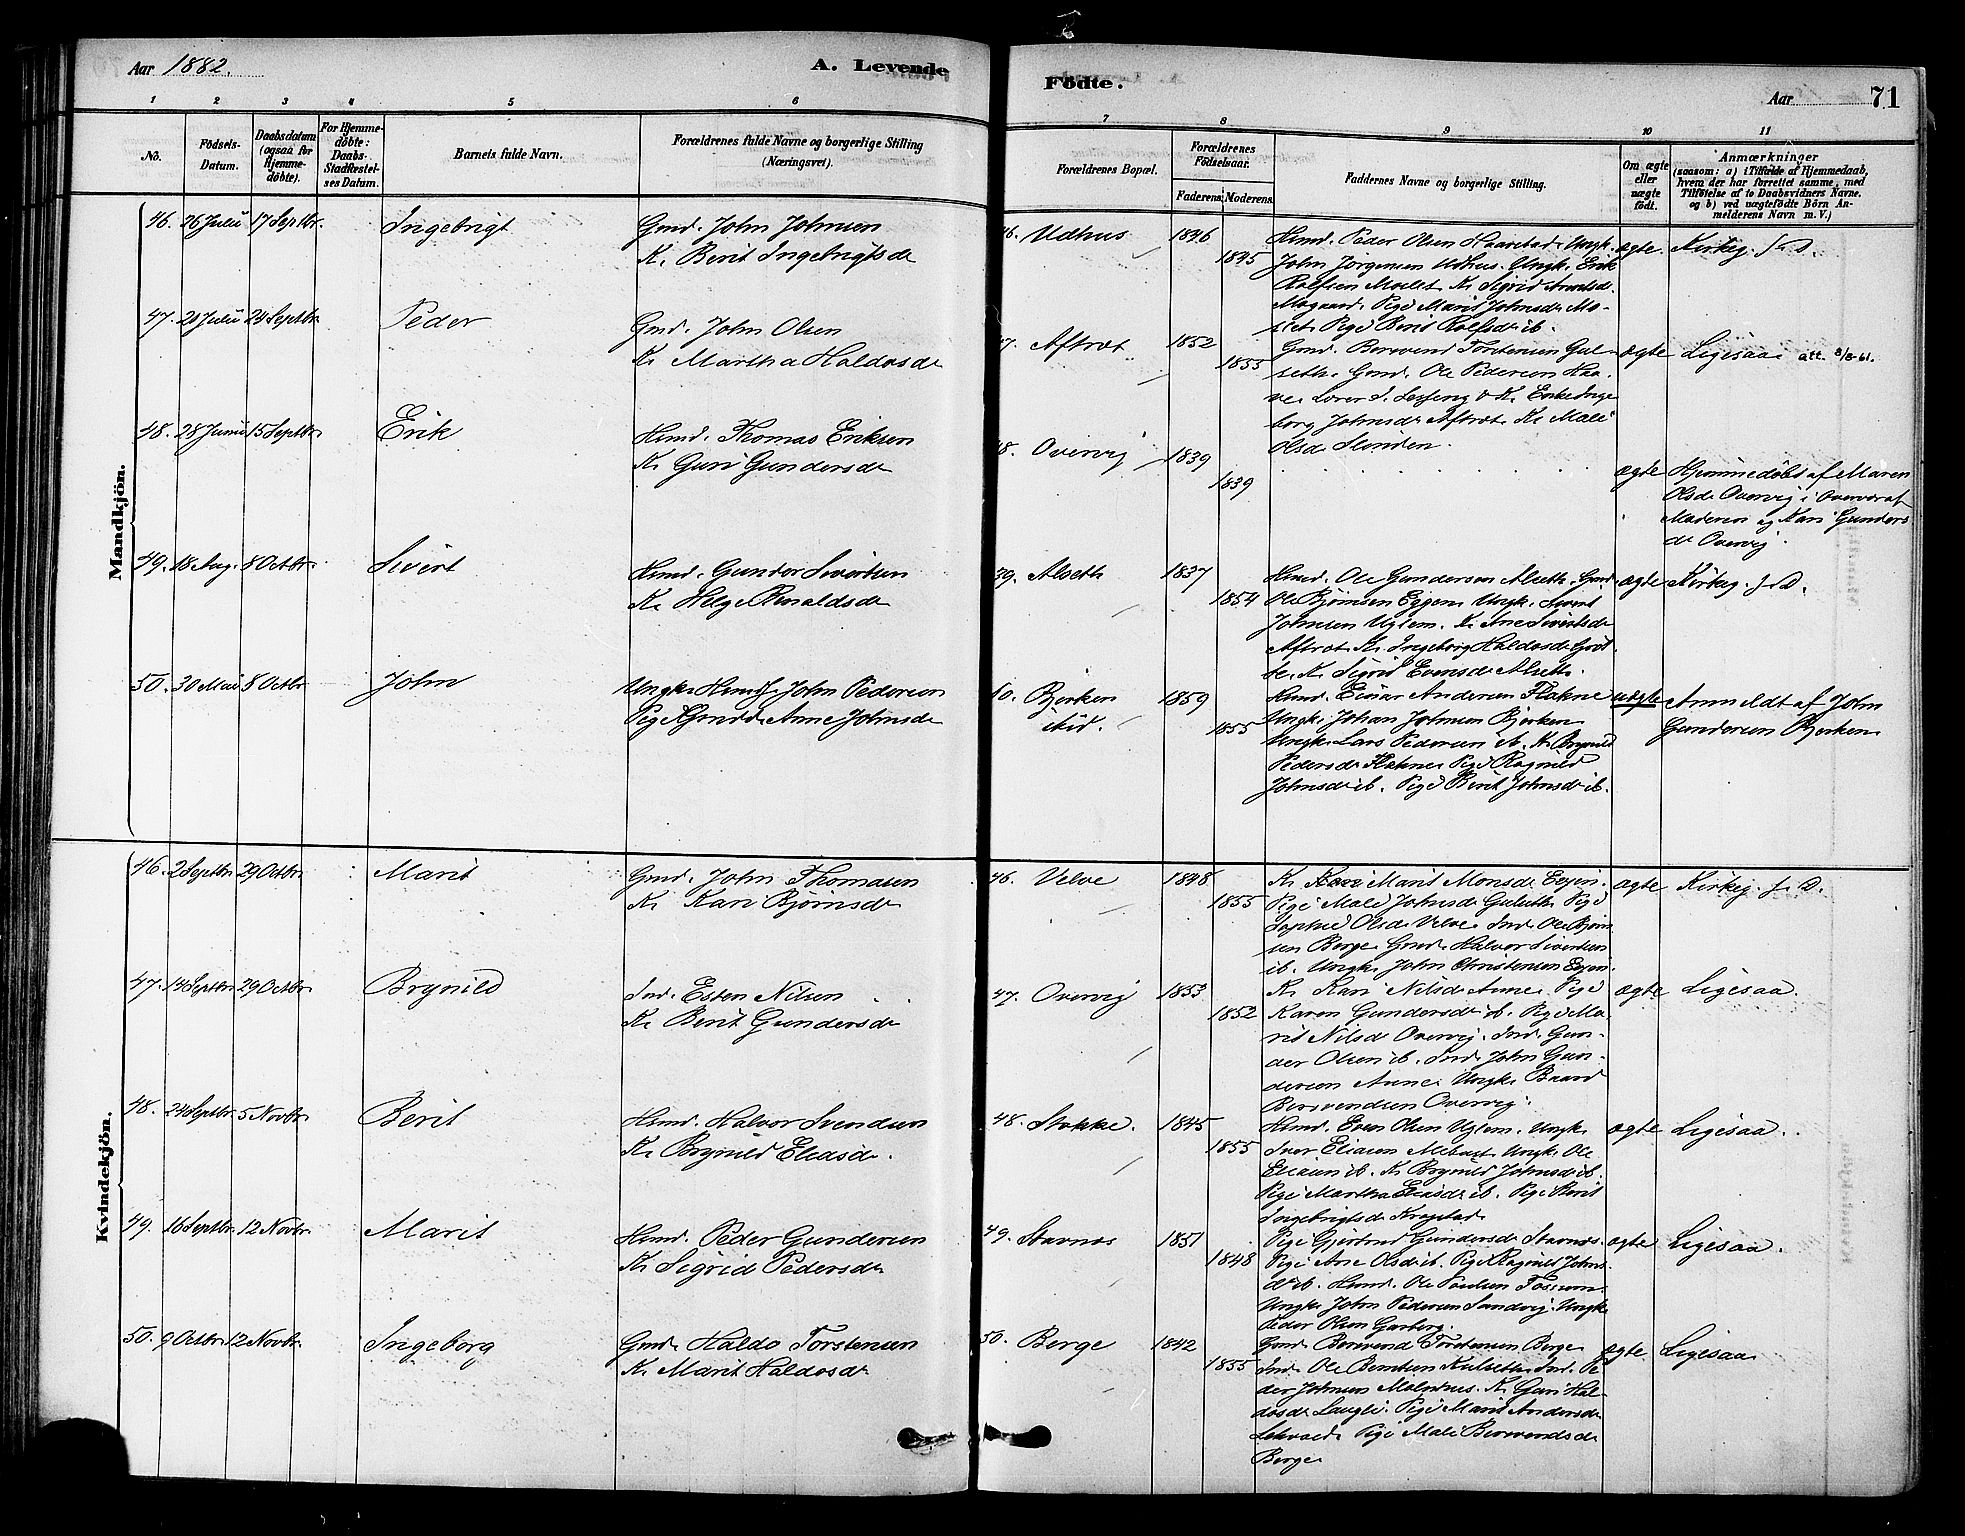 Aar 1882.
A. Levende
Födte.
Aar
71
1 2 3 4 5 6
7 8 9 10 11
No.
Födsels-Datum.
Daabsdatum (ogsaa for Hjemmedöbte).
For Hjemmedöbte: Daabs-Stadfæstelses Datum.
Barnets fulde Navn.
Forældrenes fulde Navne og borgerlige Stilling (Næringsvei).
Forældrenes Bopæl.
Forældrenes Födselsaar.
Faderens. Moderens.
Faddernes Navne og borgerlige Stilling.
Om ægte eller uægte födt.
Anmærkninger
(saasom: a) i Tilfælde af Hjemmedaab,
hvem der har forrettet samme, med
Tilföielse af to Daabsvidners Navne.
og b) ved uægtefödte Börn An-
melderens Navn m. V.)
Mandkjön.
46. 26 Juli 17 Septbr. Ingebrigt
Gmd. John Johnsen
K. Berit Ingebrigtsdr
46. Udhus 1846
1845
Hmd. Peder Olsen Haarstad. Ungk.
John Jörgensen Udhus. Ungk. Erik
Rolfsen Moslet. K. Sigrid Arntsdr
Mogaard. Pige Marit Johnsdr Mo-
slet. Pige Berit Rolfsdr ib.
ægte Kirkeg. f. D.
47. 20 Juli 24 Septbr. Peder
Gmd. John Olsen
K. Martha Haldosdr
47. Aftret 1852
1855
Gmd. Bersvend Torstensen Gul-
seth. Gmd. Ole Pedersen Haa-
ve. Lærer S. Løseng & K. Enke Inge
borg Johnsdr Aftret. K. Mali
Olsdr Slinden.
ægte Ligesaa att. 8/8-61.
48. 28 Juni 15 Septbr. Erik
Hmd. Thomas Eriksen
K. Guri Gundersdr
48. Overvig 1839
1839
ægte Hjemmedøbt af Maren
Olsdr Overvig i Overvær af
Moderen og Kari Gunders
dr Overvig.
49. 18 Aug. 8 Octbr. Sivert
Hmd. Gundor Sivertsen
K. Helge Renaldsdr
39. Alseth 1837
1854
Hmd. Ole Gundersen Alseth. Gmd.
Ole Bjørnsen Eggen. Ungk. Sivert
Johnsen Uglem. K. Ane Sivertsdr
Aftret. K. Ingeborg Haldosdr Gröt
te. K. Sigrid Evensdr Alseth.
ægte Kirkeg. f. D.
50. 30 Mai 8 Octbr John
Ungk. Hmdsf. John Pedersen
Pige Gmdd. Anne Johnsdr
50. Bjerken
eid.
1859
1855
Hmd. Einar Andersen Flakne
Ungk. Johan Johnsen Bjerken
Ungk. Lars Pedersen A. K. Brynild
Pedersdr Flakne. Pige Ragnild
Johnsdr ib. Pige Berit Johnsdr ib.
uægte Anmeldt af John
Gundersen Bjerken
Kvindekjön.
46. 2 Septbr. 29 Octbr. Marit
Gmd. John Thomasen
K. Kari Bjørnsdr
46. Velve 1848
1855
K. Marit Monsdr Evjen.
Pige Mali Johnsdr Gulseth. Pige
Sophie Olsdr Velve. Ind. Ole Bjørn
sen Berge. Gmd. Halvor Sivertsen
ib. Ungk. John Christensen Evjen.
ægte Kirkeg. f. D.
47. 14 Septbr. 29 Octbr. Brynild
Ind. Esten Nilsen
K. Berit Gundersdr
47. Overvig 1853
1852
K. Kari Nilsdr Aune. Pige
Karen Gundersdr ib. Pige Ma-
rit Nilsdr Overvig. Ind. Gun-
der Olsen ib. Ind. John Gun-
dersen Aune. Ungk. Baard
Bersvendsen Overvig.
ægte Ligesaa.
48. 24 Septbr. 5 Novbr. Berit
Hmd. Halvor Svendsen
K. Brynild Eliasdr.
48. Stokke. 1845
1855
Hmd. Even Olsen Uglem. Ungk.
Iver Eliasen Mebust. Ungk. Ole
Eliasen ib. K. Brynild Johnsdr ib.
Pige Martha Eliasdr ib. Pige Berit
Ingebrigtsdr Krogstad.
ægte Ligesaa.
49. 16 Septbr. 12 Novbr. Marit
Hmd. Peder Gundersen
K. Sigrid Pedersdr
49. Stavnes 1851
1848
Pige Gjertrud Gundersdr Stavnes.
Pige Ane Olsdr ib. Pige Ragnild Johns
dr ib. Hmd. Ole Paulsen Fossum.
Ungk. John Pedersen Sandvig. Ungk.
Peder Olsen Garberg.
ægte Ligesaa.
50. 9 Octbr. 12 Novbr. Ingeborg
Gmd. Haldo Torstensen
K. Marit Haldosdr
50. Berge 1842
1855
Gmd. Bersvend Torstensen Berge
Ind. Ole Berntsen Kulseth. Ind. Pe-
der Johnsen Malmnes. K. Guri Hal-
dosdr Laugli. Pige Marit Andersdr
Pige Mali Bersvendsdr
Berge
ægte Ligesaa